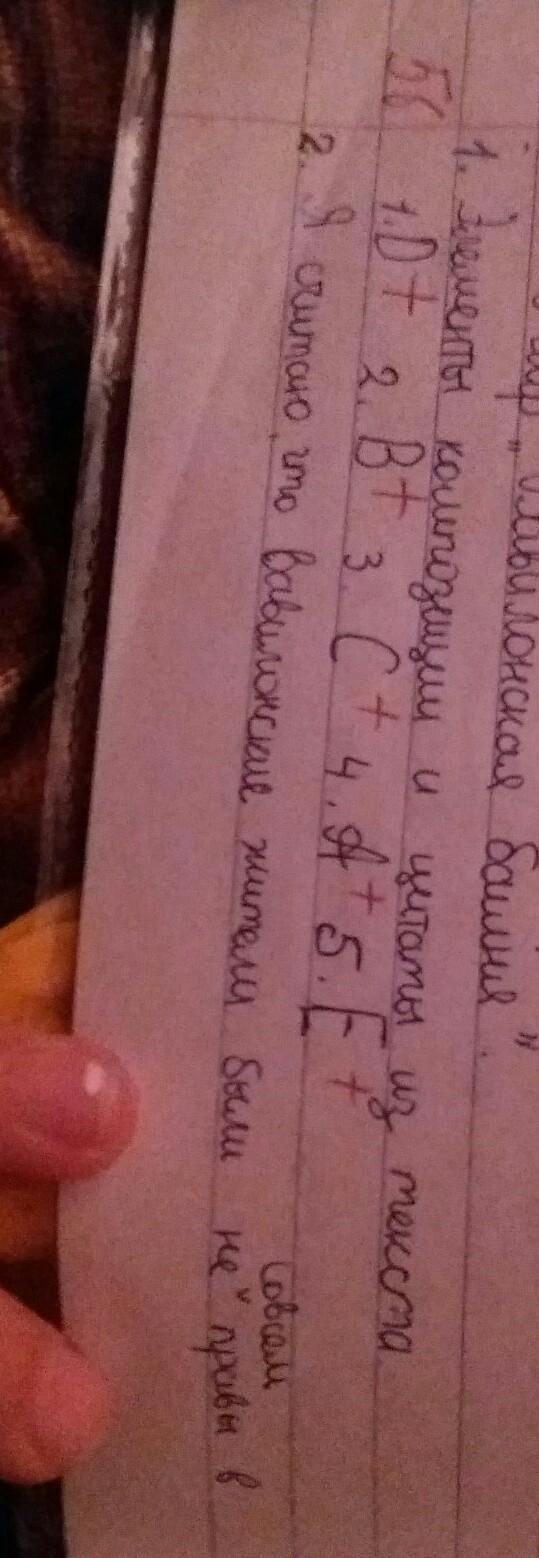 „Вавилонская башня".
1. Элементы композиции и цитаты из текста
5б 1. D + 2. B + 3. C + 4. A + 5. E +
совсем
2. Я считаю, что вавилонские жители были не ˅ правы в